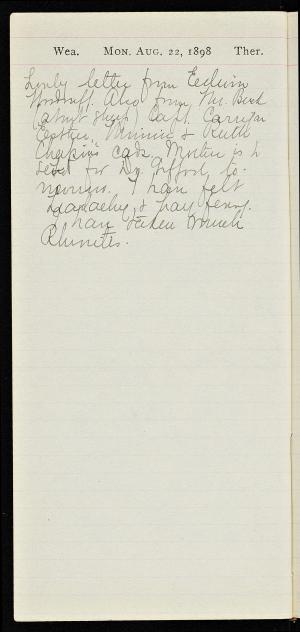 Wea. Mon. Aug. 22, 1898 Ther.
Lovely letter from Edwin
Woodruff. Also from Mr. Bush
(about sheep) Capt.
Minnie & Ruth
Chapin's cads. Mother is to
send for Dr. Gifford to-
morrow. I have felt
headachy & hay fevery.
I have taken much
Rhinitis.